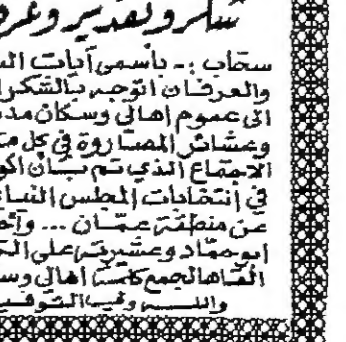 شكر وتقدير وعر
سحاب :- بأسمى آيات ال
والعرفان اتوجه بالشكر ا
الى عموم اهالي وسكان مد
وعشائر المصاروة في كل م
الاجتماع الذي تم بـأن اكو
في انتخابات المجلس النيا
عن منطقة عمان ... وأخ
ابو حماد وعشيرته على ال
القاها لجمع كلمة اهالي وس
والله ولي التوفيق